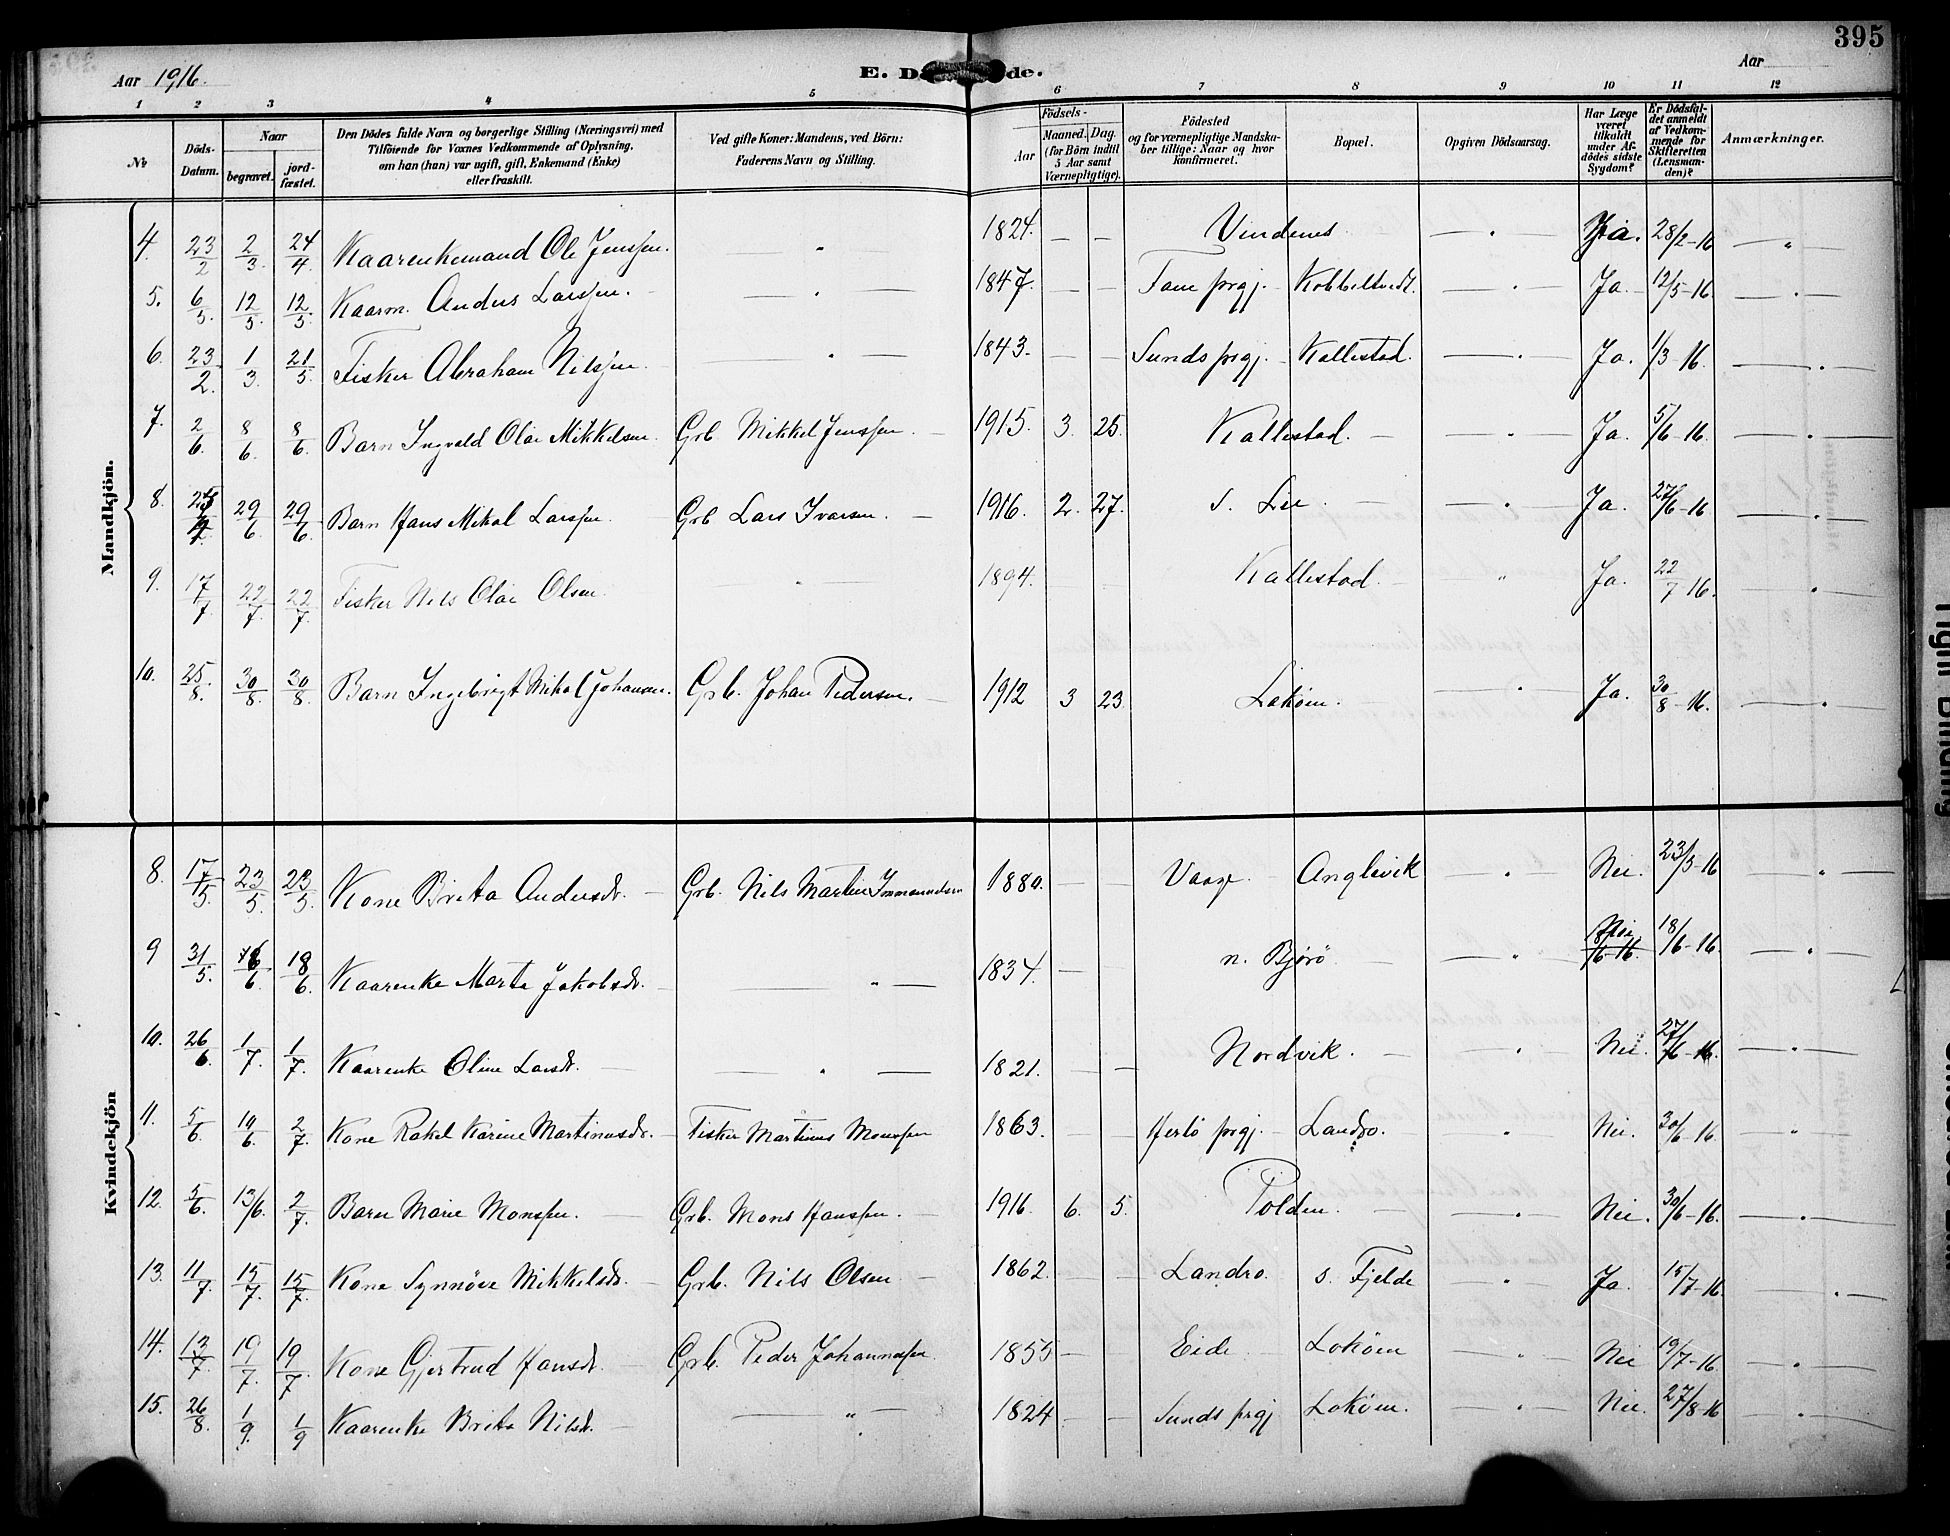 395
Aar 1916.
E. Dø de.
Aar
1 2 3 4 5 6 7 8 9 10 11 12
No
Døds-Datum.
Naar
begravet.
jord-fæstet.
Den Dødes fulde Navn og borgerlige Stilling (Næringsvei) med Tilføiende for Voxnes Vedkommende af Oplysning, om han (hun) var ugift, gift, Enkemand (Enke) eller fraskilt.
Ved gifte Koner: Mandens, ved Børn: Faderens Navn og Stilling.
Fødsels-
Aar
Maaned. Dag.
(for Børn indtil 5 Aar samt Værnepligtige).
Fødested og for værnepligtige Mandskaber tillige: Naar og hvor konfirmeret.
Bopæl.
Opgiven Dødsaarsag.
Har Læge været tilkaldt under Afdødes sidste Sygdom?
Er Dødsfaldet anmeldt af Vedkommende for Skifteretten (Lensmanden)?
Anmærkninger.
Mandkjøn.
4. 23/2 2/3 24/4 Kaarenkemand Ole Jenssen. — " — 1824. — — Vindenes — " — Ja. 28/2-16 — " —
5. 6/5 12/5 12/5 Kaarm. Anders Larssen. — " — 1847. — — Fane prgj. Kobbeltvedt. — " — Ja. 12/5-16 — " —
6. 23/2 1/3 21/5 Fisker Abraham Nilssen. — " — 1843. — — Sunds prgj. Kallestad. — " — Ja. 1/3 16. — " —
7. 2/6 8/6 8/6 Barn Ingvald Olai Mikkelsen. Grb. Mikkel Jenssen. — 1915. 3. 25. Kallestad. — " — Ja. 5/6-16. — " —
8. 29/6 29/6 Barn Hans Mikal Larssen Grb Lars Ivarsen. — 1916. 2. 27. s. Lie — " — Ja. 27/6-16 — " —
9. 17/7 22/7 22/7 Fisker Nils Olai Olsen. — " — 1894. Kallestad. — " Ja. 22/7-16. — " —
10. 25/8. 30/8. 30/8. Barn Ingebrigt Mikal Johansen. Grb. Johan Pedersen. — 1912 3 23. Lokøen. — " — Ja. 30/8-16. — " —
Kvindekjøn
8. 17/5. 23/5. 23/5. Kone Brita Andersdr. — Grb. Nils Martin Immanuelsen 1880. — Vaage. — Anglevik — " — Nei. 23/5-16 "
9 31/5. 6/6. 18/6. Kaarenke Marta Jakobsdr. — " — 1834. — n. Bjørø — " — 18/6-16. — " —
10. 26/6. 1/7. 1/7. Kaarenke Oline Larsdr. — " — 1821. — — Nordvik. — " — Nei. 27/6-16. — " —
11. 5/6. 10/6. 2/7. Kone Rakel Karine Martinusdr. — Fisker Martinus Monssen 1863. — Herlø prgj. — Landro. " Nei. 30/6-16. — " —
12. 5/6. 13/6. 2/7. Barn Marie Monssen. — Grb. Mons Hanssen. — 1916. 6. 5. Polden. — " — Nei. 30/6-16. — " —
13. 11/7. 15/7. 15/7. Kone Synnøve Mikkelsdr. — Grb. Nils Olsen — 1862. Landro. s. Fjelde " Ja. 15/7-16. — " —
14. 13/7. 19/7. 19/7 Kone Gjertrud Hansdr. Grb. Peder Johannessen. 1855 — Eide. Lokøen " Nei 19/7-16. — " —
15. 26/8. 1/9. 1/9 Kaarenke Brita Nilsdr. — " — 1824 — — Sunds prgj Lokøen. — " — Nei. 27/8-16 — " —
Tight Binding